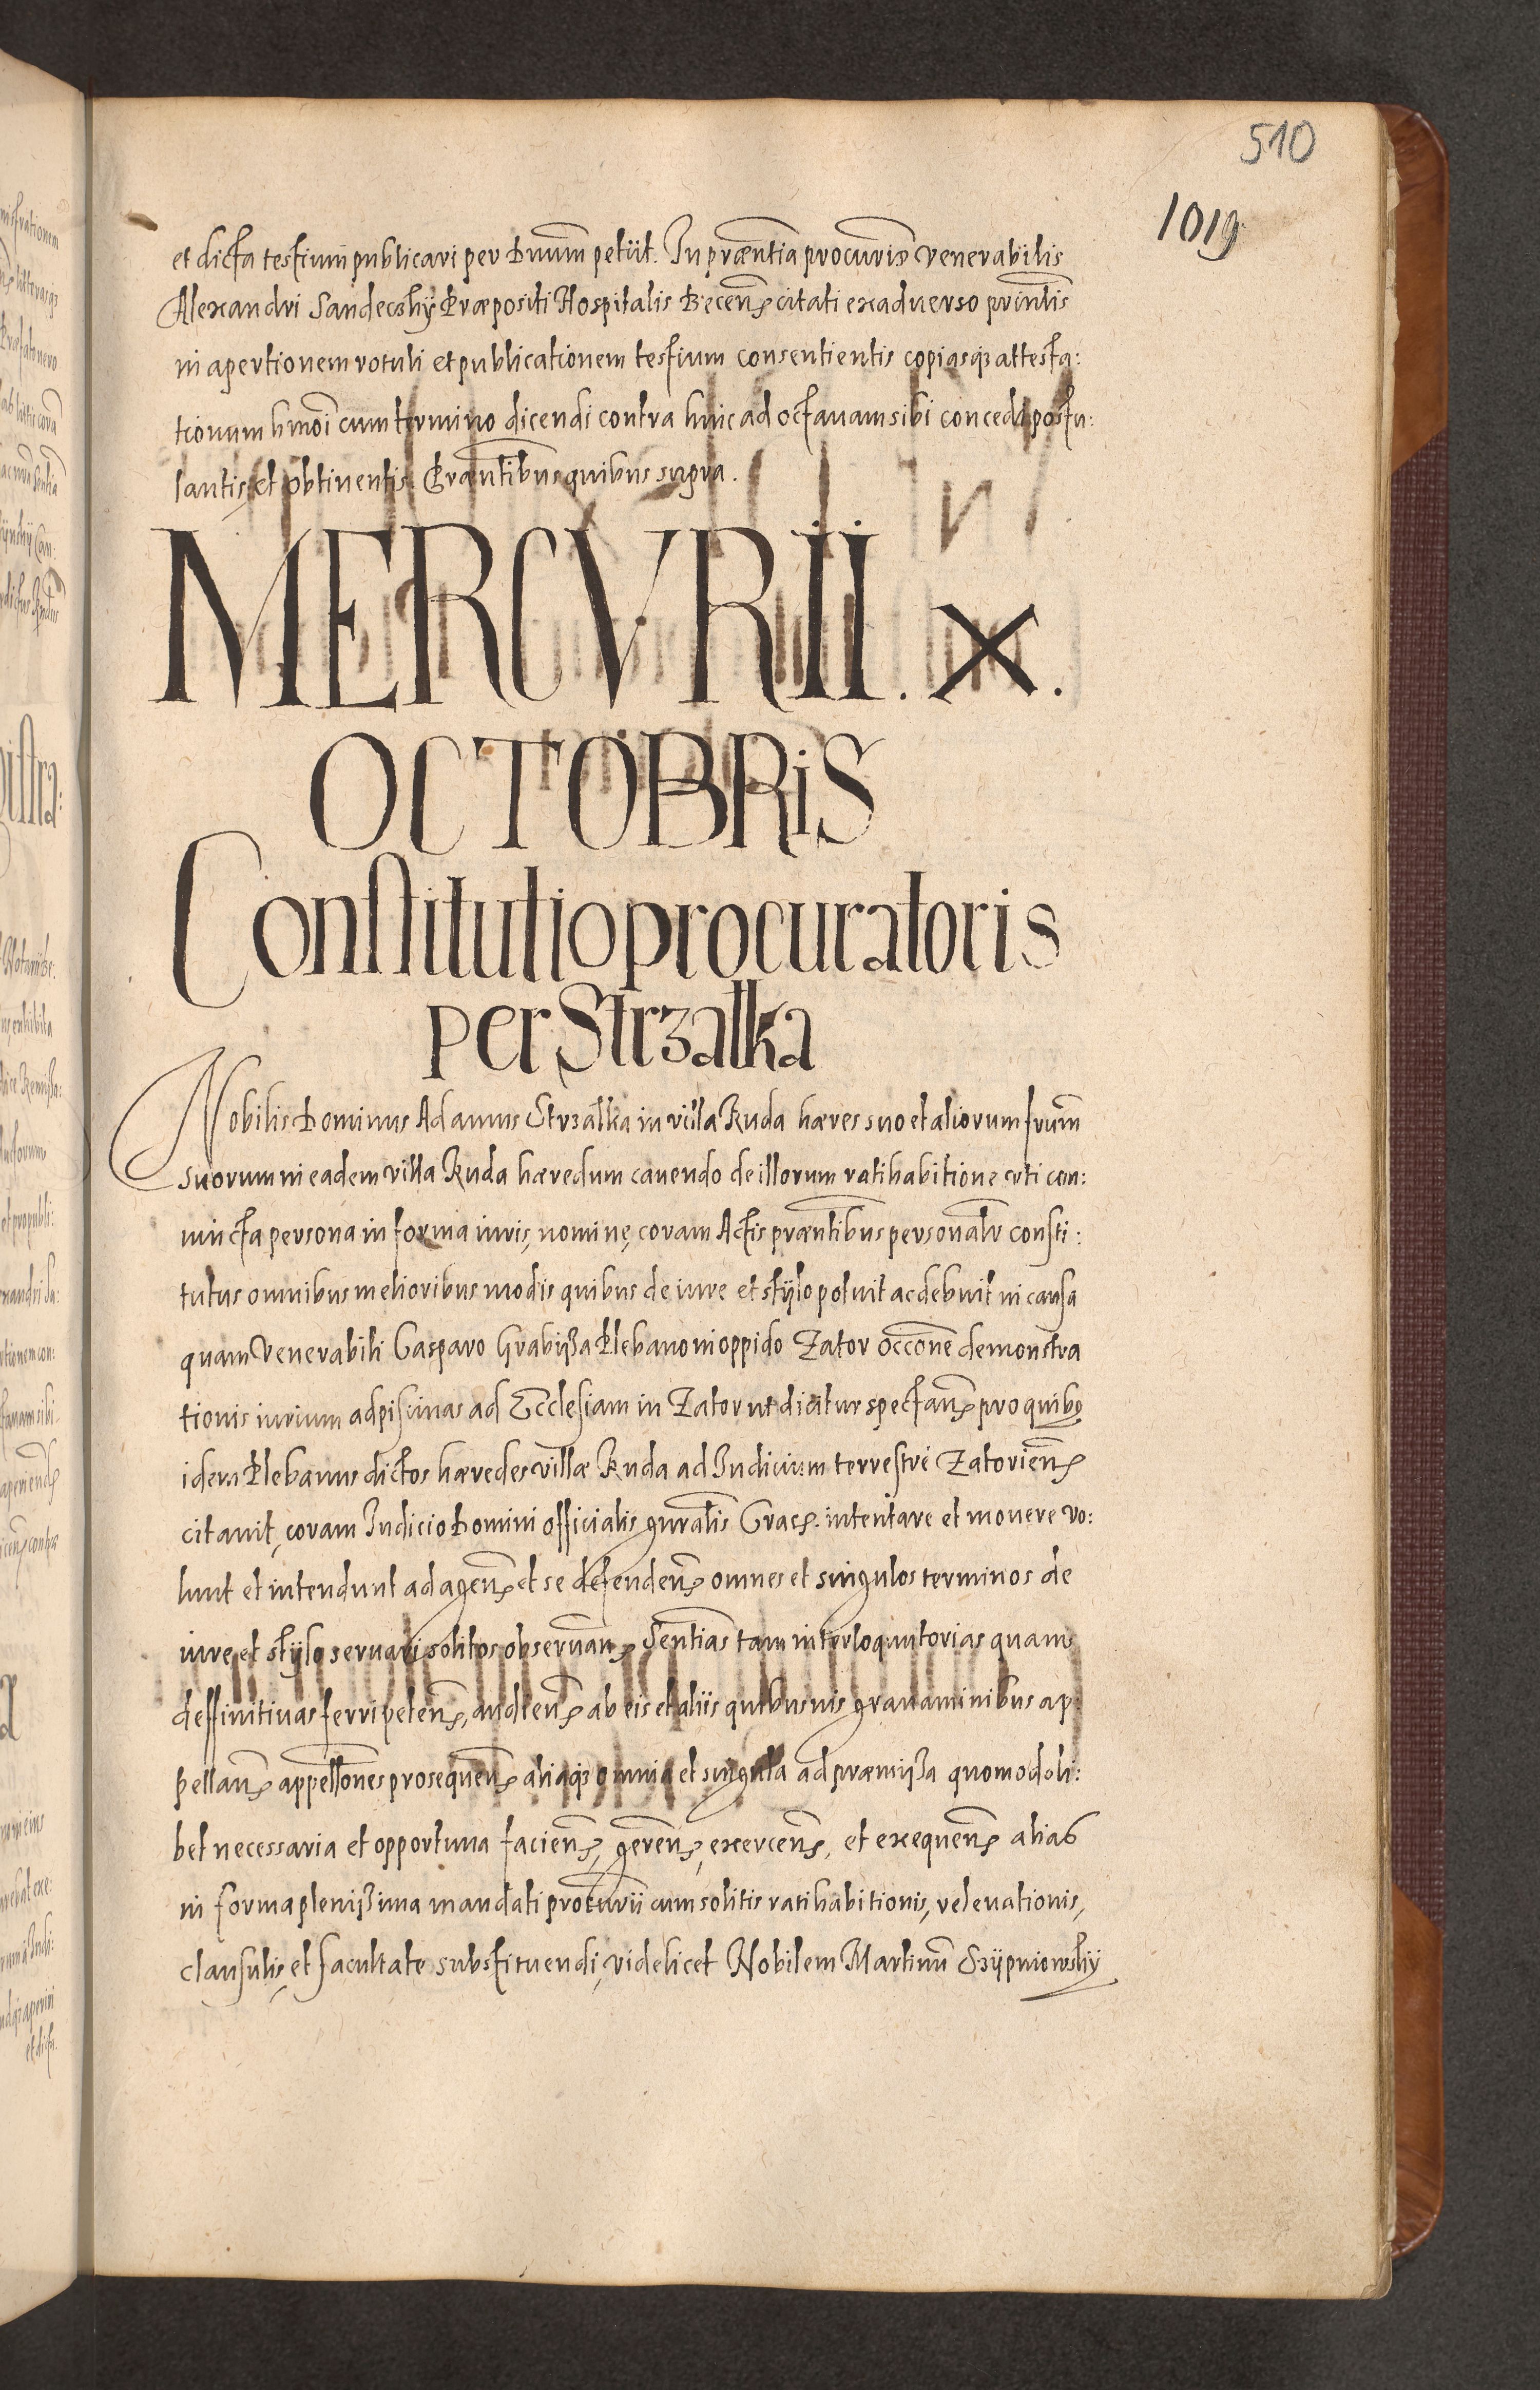 510
1019
et dicta testium publicari per Dnum petiit. In præntia procuris Venerabilis
Alexandri Sandecshy Præpositi Hospitalis Becens citati exaduerso printis
in apertionem rotuli et publicationem testium consentientis copiasqз attesta:
tionum hmoi cum termino dicendi contra hinc ad octauam sibi concedi postu:
lantis et obtinentis. Præntibus quibus supra.
MERCVRII. X.
OCTOBRIS
Constitutio procuratoris
per Strzalka
Nobilis Dominus Adamus Strzalka in villa Ruda hæres suo et aliorum frum
suorum in eadem villa Ruda hæredum cauendo de illorum ratihabitione vti con:
iuncta persona in forma iuris, nomine, coram Actis præntibus personalr consti:
tutus omnibus melioribus modis quibus de iure et stÿlo potuit ac debuit in causa
quam Venerabili Casparo Grabißa Plebano in oppido Zator occone demonstra
tionis iurium ad piscinas ad Ecclesiam in Zator ut dicitur spectans pro quibus
idem Plebanus dictos hæredes villæ Ruda ad Iudicium terrestre Zatoriens
citauit, coram Iudicio Domini officialis gnralis Crac. intentare et mouere vo:
lunt et intendunt ad agens et se defendens omnes et singulos terminos de
iure et stÿlo seruari solitos obseruans Sentias tam interloquutorias quam
deffinitiuas ferri petens, audiens ab eis et aliis quibusuis grauaminibus ap:
pellans appellones prosequens aliaqз omnia et singula ad præmißa quomodoli:
bet necessaria et opportuna faciens, gerens, exercens, et exequens alias
in forma plenißima mandati procurii cum solitis ratihabitionis, releuationis,
clausulis, et facultate substituendi, videlicet Nobilem Martinu Srÿpniowshÿ